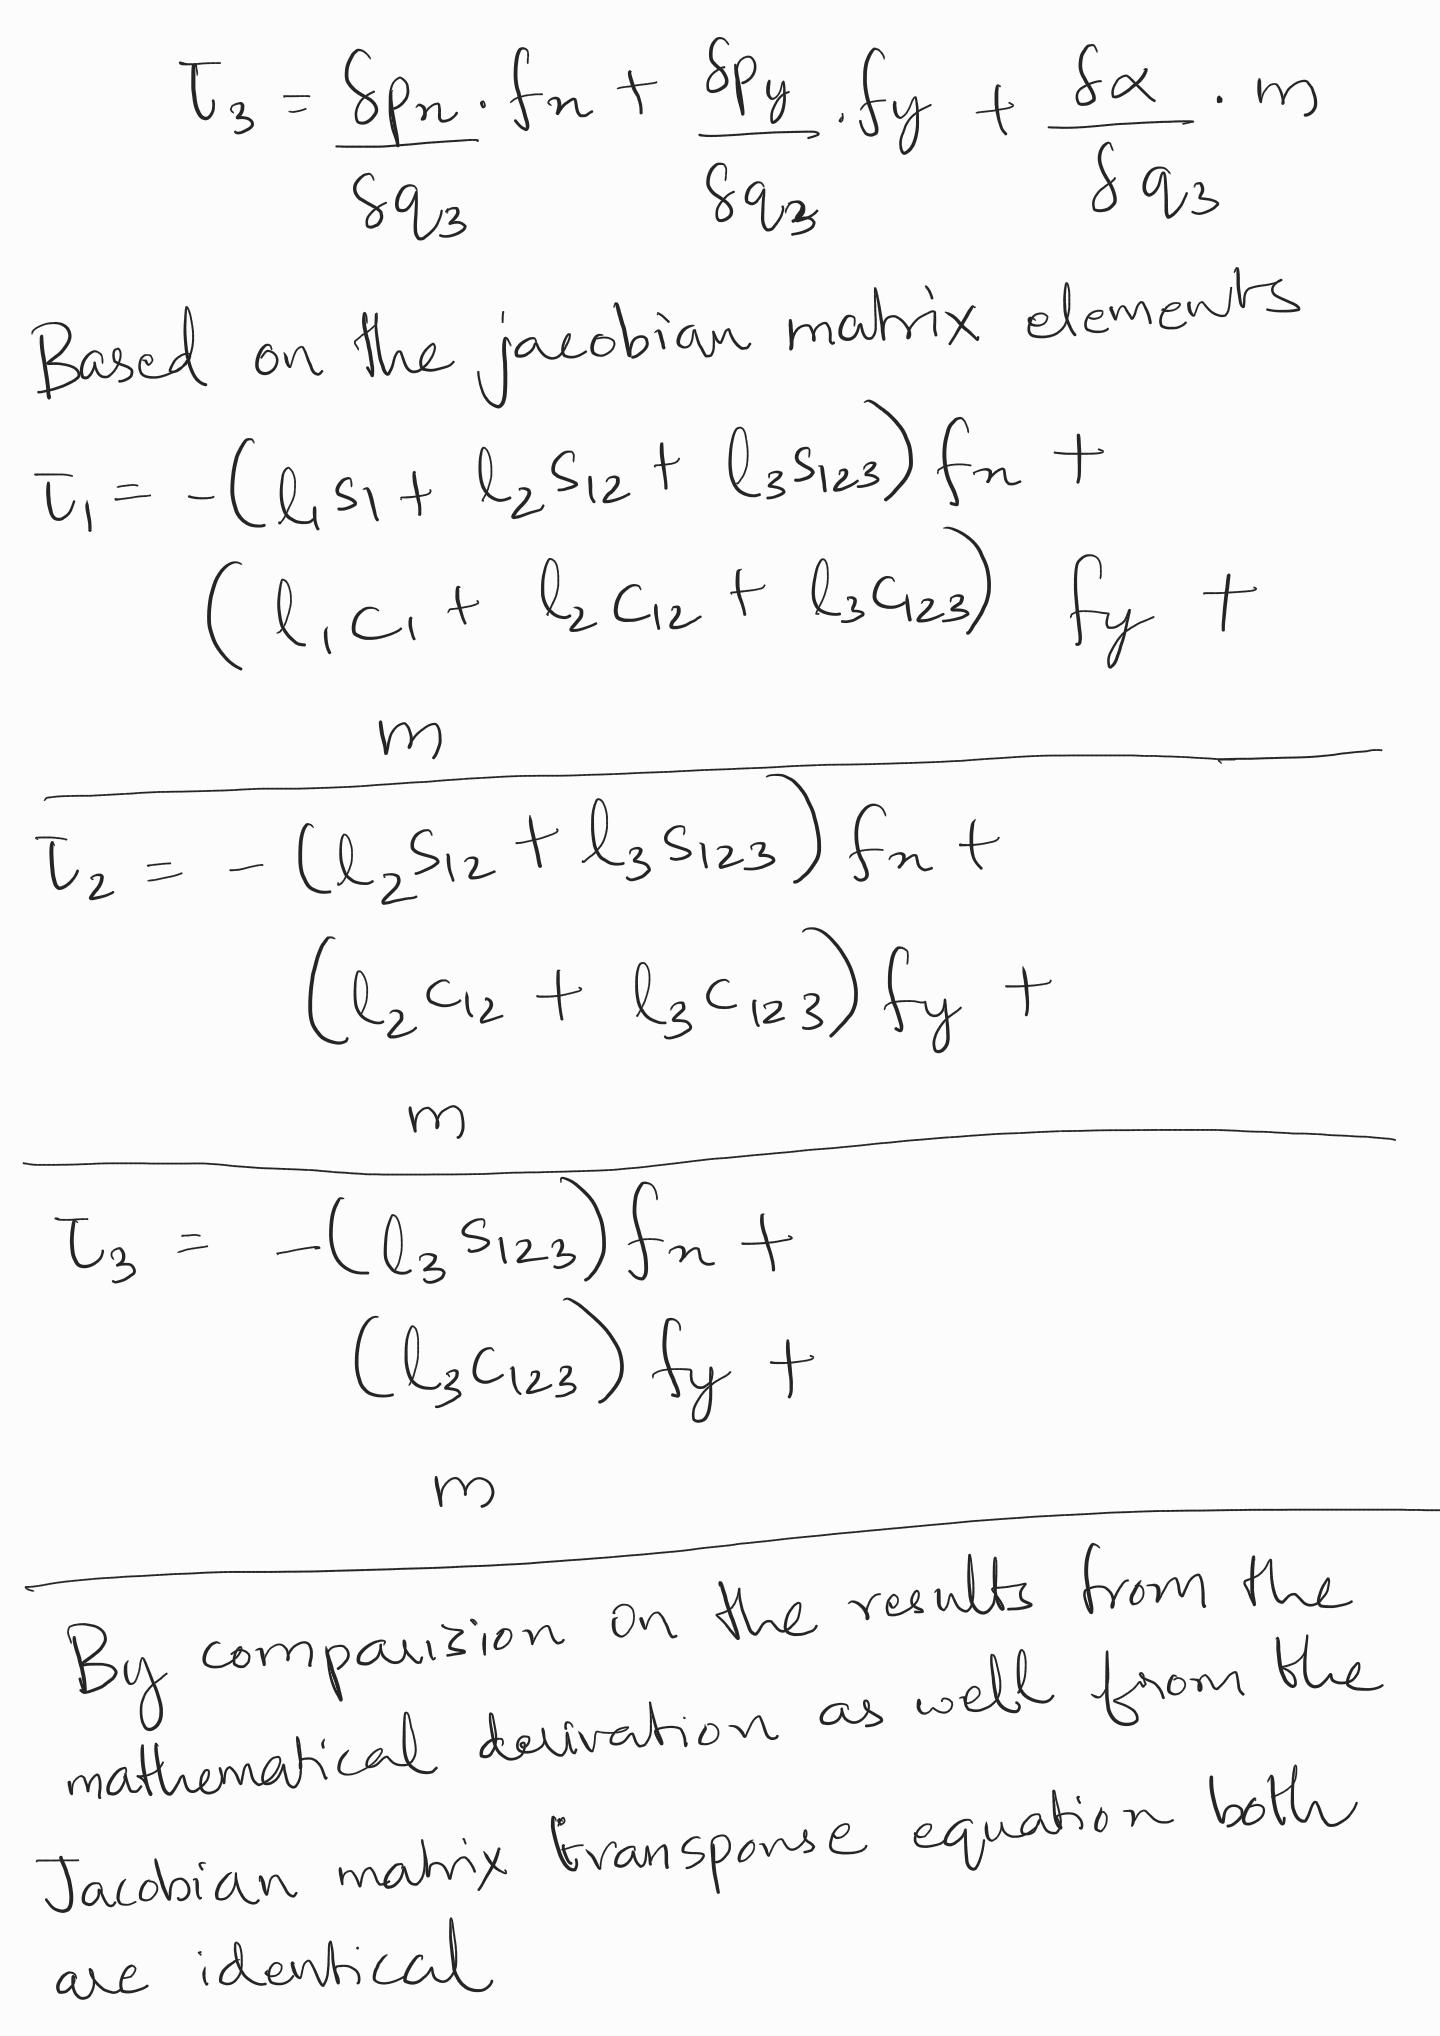 τ₃ = δpx/δq₃ · fx + δpy/δq₃ · fy + δα/δq₃ · m
Based on the jacobian matrix elements
τ₁ = -(l₁s₁ + l₂s₁₂ + l₃s₁₂₃) fx +
(l₁c₁ + l₂c₁₂ + l₃c₁₂₃) fy +
m
τ₂ = -(l₂s₁₂ + l₃s₁₂₃) fx +
(l₂c₁₂ + l₃c₁₂₃) fy +
m
τ₃ = -(l₃s₁₂₃) fx +
(l₃c₁₂₃) fy +
m
By comparision on the results from the
mathematical derivation as well from the
Jacobian matrix transponse equation both
are identical